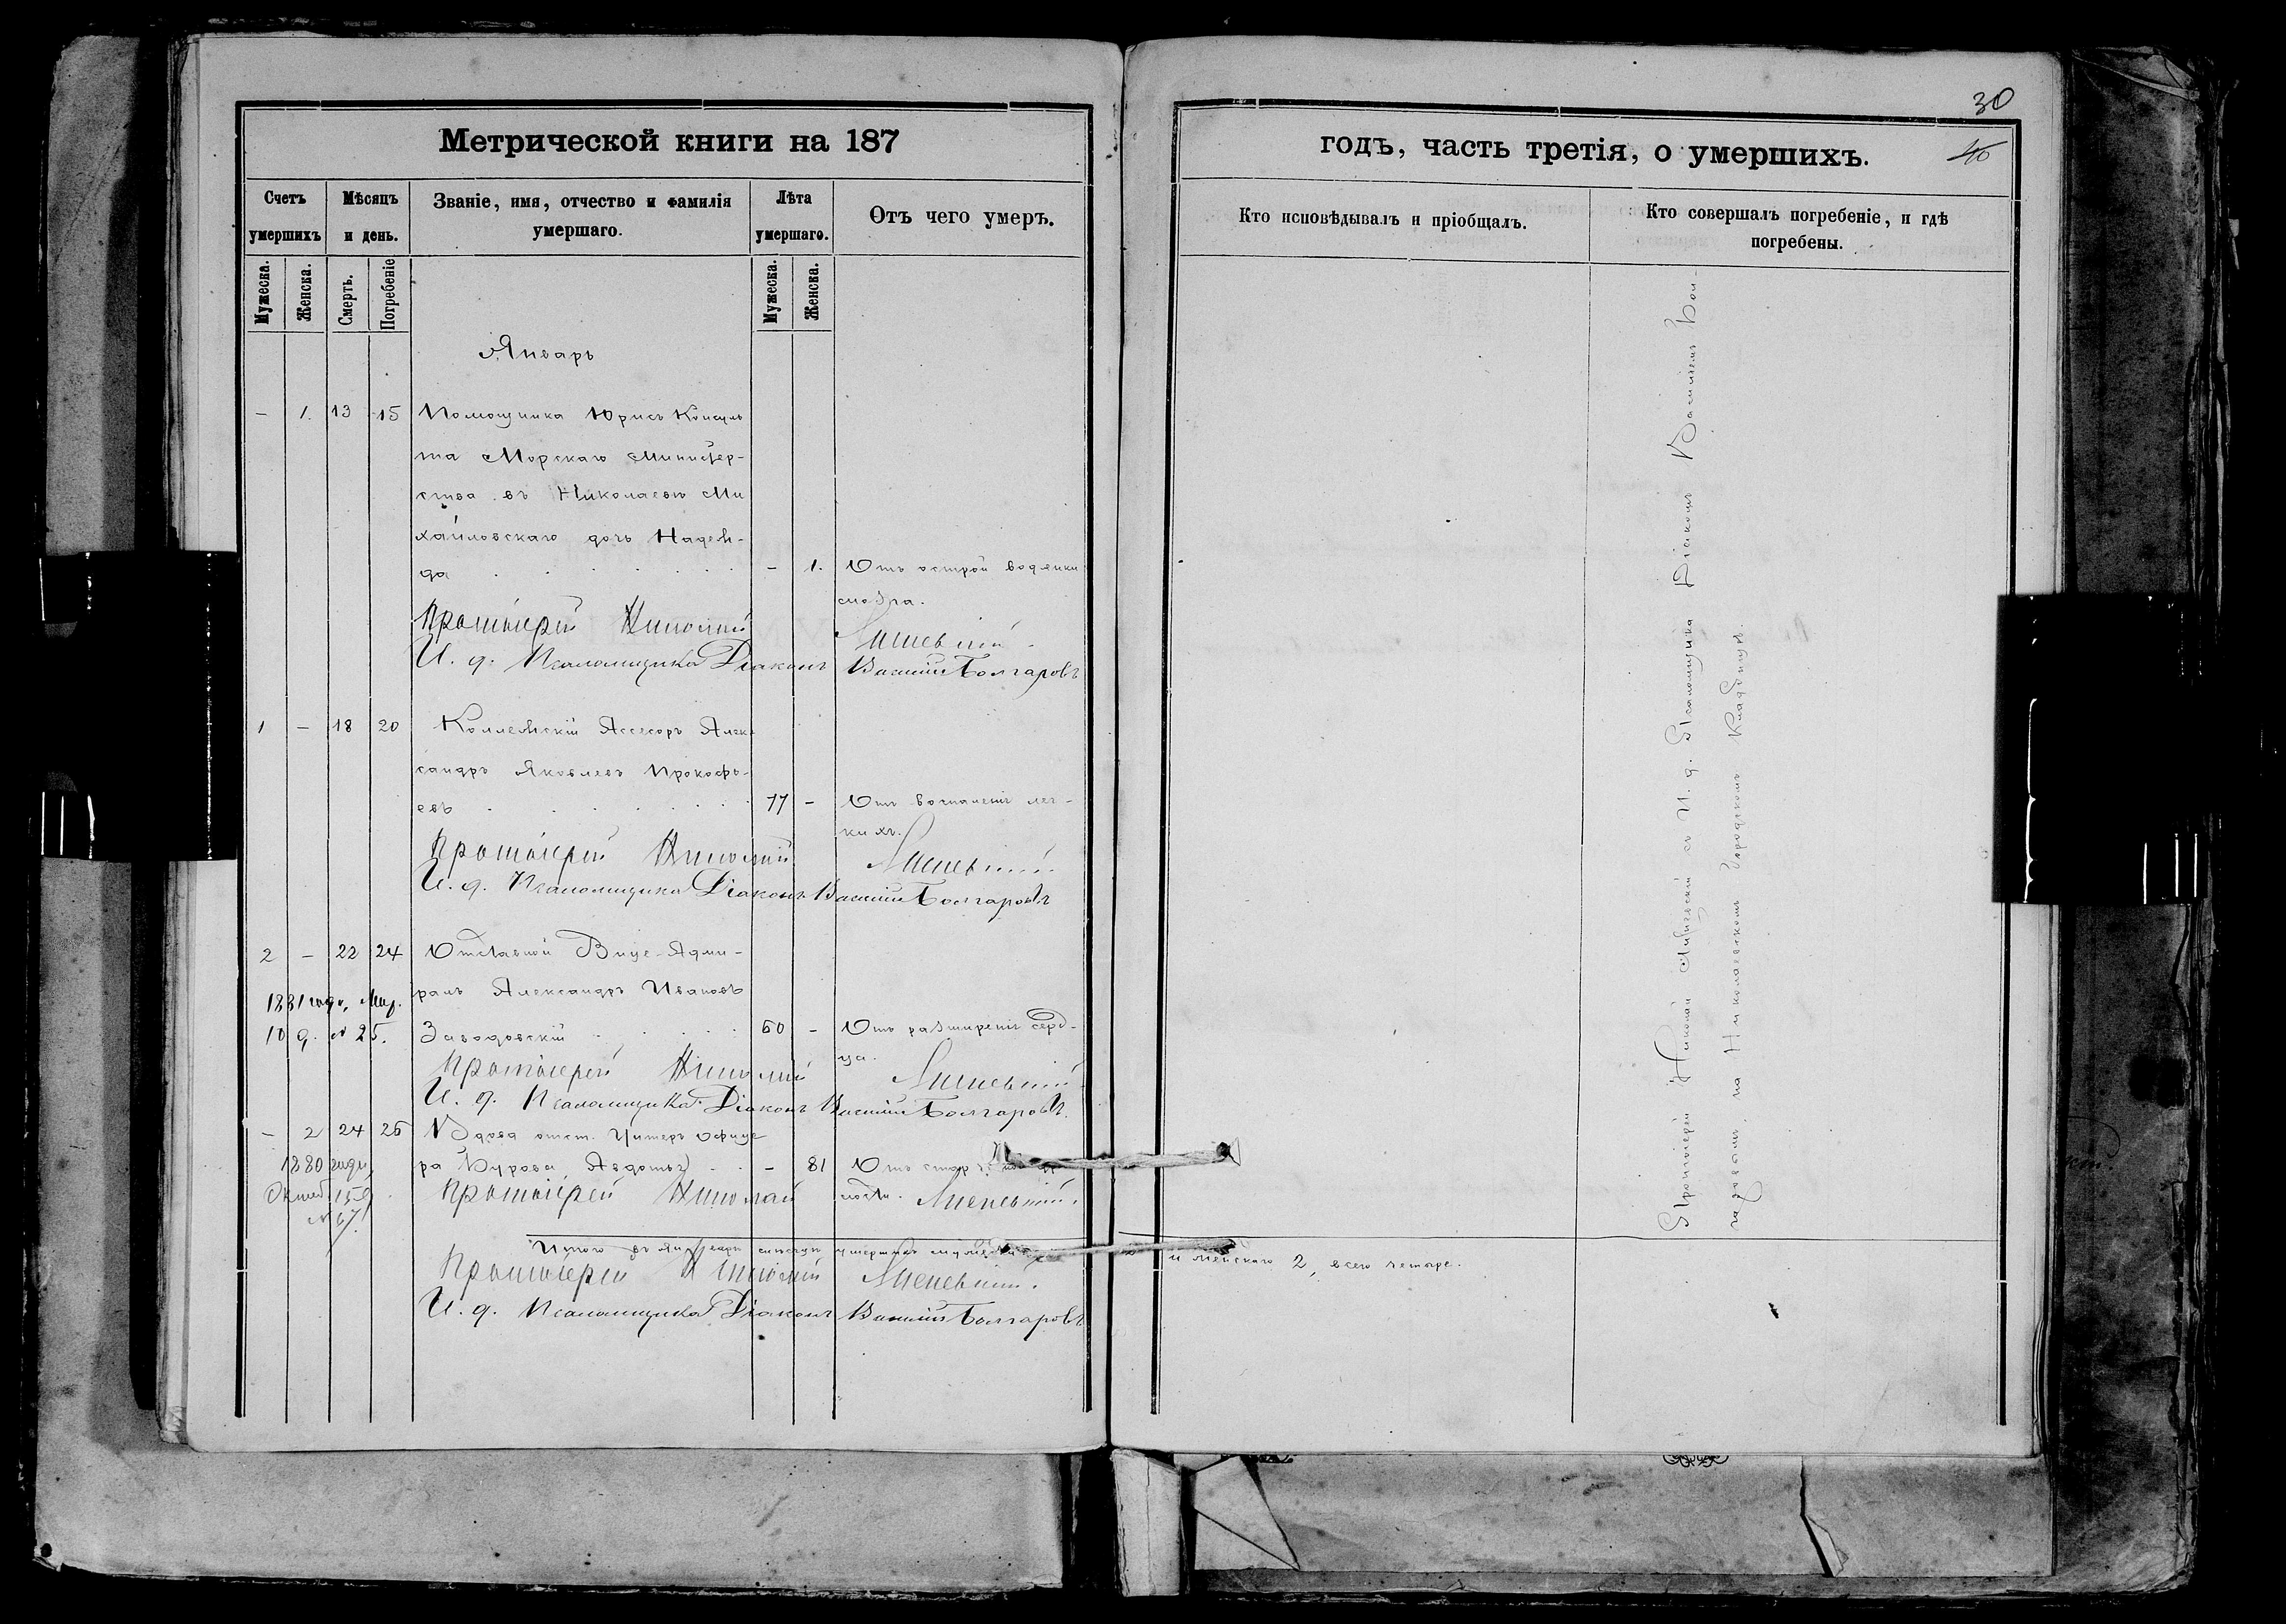 Метрической книги на 187
Счетъ умершихъ
Мѣсяцъ и день.
Званіе, имя, отчество и фамилія умершаго.
Лѣта умершаго.
Отъ чего умеръ.
Мужеска.
Женска.
Смерть.
Погребеніе
Мужеска.
Женска.
Январь
– 1. 13 15 Помощника Юрисъ Консуль
та Морскаго Министер-
ства въ Николаевѣ Ми
хайловскаго дочь Надеж-
да – 1. Отъ острой водянки
мозга.
Протоіерей Николай
И. д. Псаломщика Діаконъ Василій Болгаровъ
1 – 18 20 Коллежскій Ассесоръ Алек
сандръ Яковлевъ Прокофь-
евъ 77 – Отъ воспаленія лег-
кихъ.
Протоіерей Николай
И. д. Псаломщика Діаконъ Василій Болгаровъ
2 – 22 24 Отставной Вице-Адми-
ралъ Александръ Ивановъ
1881 года, Мар.
10 д. № 25.
Заводовскій 60 – Отъ разширенія серд-
ца.
Протоіерей Николай
И. д. Псаломщика Діаконъ Василій Болгаровъ
– 2 24 26 Вдова отст. Унтеръ офице
ра Бурова, Авдотья – 81 Отъ
1880 года,
Октяб. 15 д.
№ 67
Протоіерей Николай
Итого въ Январѣ мѣсяцѣ умершихъ мужеска
Протоіерей Николай
И. д. Псаломщика Діаконъ Василій Болгаровъ
30
40
годъ, часть третія, о умершихъ.
Кто исповѣдывалъ и пріобщалъ.
Кто совершалъ погребеніе, и гдѣ погребены.
Протоіерей Николай съ И. д. Псаломщика Діакономъ Василіемъ Бол-
гаровымъ на Николаевскомъ Городскомъ Кладбищѣ.
и женскаго 2, всего четыре.